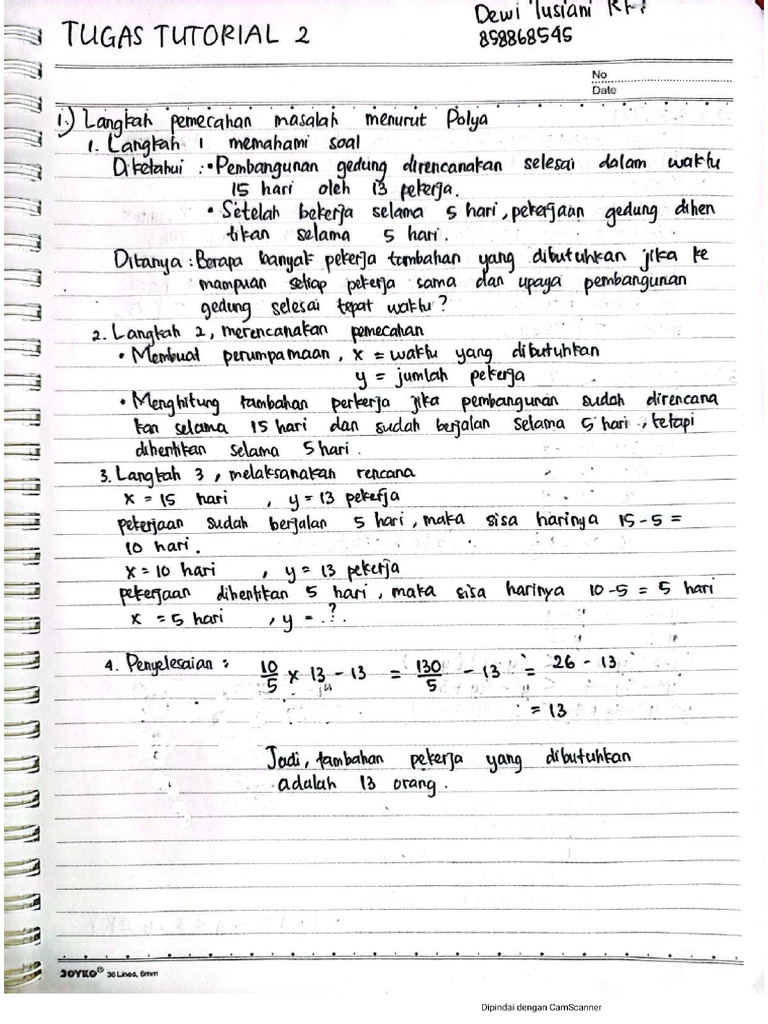 Dewi Tusiani
TUGAS TUTORIAL 2
858868545
No
Date
1.) Langkah pemecahan masalah menurut Polya
1. Langkah 1 memahami soal
Diketahui : • Pembangunan gedung direncanakan selesai dalam waktu
15 hari oleh 13 pekerja.
• Setelah bekerja selama 5 hari, pekerjaan gedung dihen
tikan selama 5 hari.
Ditanya : Berapa banyak pekerja tambahan yang dibutuhkan jika ke
mampuan setiap pekerja sama dan upaya pembangunan
gedung selesai tepat waktu?
2. Langkah 2, merencanakan pemecahan
• Membuat perumpamaan, x = waktu yang dibutuhkan
y = jumlah pekerja
• Menghitung tambahan perkerja jika pembangunan sudah direncana
kan selama 15 hari dan sudah berjalan selama 5 hari, tetapi
dihentikan selama 5 hari.
3. Langkah 3, melaksanakan rencana
x = 15 hari , y = 13 pekerja
pekerjaan sudah berjalan 5 hari, maka sisa harinya 15 - 5 =
10 hari.
x = 10 hari , y = 13 pekerja
pekerjaan dihentikan 5 hari, maka sisa harinya 10 - 5 = 5 hari
x = 5 hari , y = ..?.
4. Penyelesaian : 10/5 x 13 - 13 = 130/5 - 13 = 26 - 13
= 13
Jadi, tambahan pekerja yang dibutuhkan
adalah 13 orang.
JOYKO® 36 Lines, 6mm
Dipindai dengan CamScanner